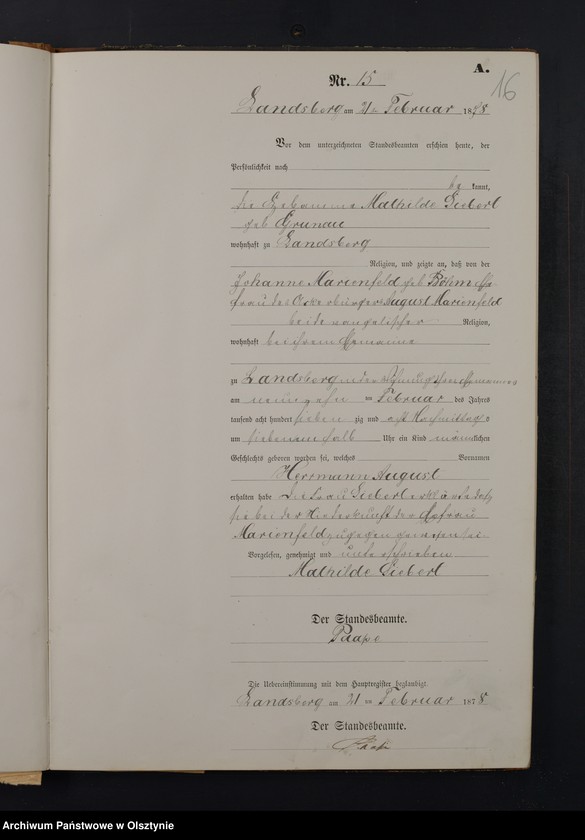 A.
16
Nr. 15
Landsberg am 21ten Februar 1878
Vor dem unterzeichneten Standesbeamten erschien heute, der
Persönlichkeit nach
be kannt,
die Hebamme Mathilde Siebert
geb Grunau
wohnhaft zu Landsberg
Religion, und zeigte an, daß von der
Johanne Marienfeld geb Böhm Ehe
frau des Ackerbürgers August Marienfeld
beide evangelischer Religion,
wohnhaft bei ihrem Ehemanne
zu Landsberg in der Wohnung ihres Ehemannes
am neunzehn ten Februar des Jahres
tausend acht hundert sieben zig und acht Nachmittags
um sieben einhalb Uhr ein Kind männlichen
Geschlechts geboren worden sei, welches Vornamen
Herrmann August
erhalten habe Die Frau Siebert erklärte daß
sie bei der Niederkunft der Ehefrau
Marienfeld zugegen gewesen sei
Vorgelesen, genehmigt und unterschrieben
Mathilde Siebert
Der Standesbeamte.
Paape
Die Uebereinstimmung mit dem Hauptregister beglaubigt.
Landsberg am 21 ten Februar 1878
Der Standesbeamte.
Archiwum Państwowe w Olsztynie